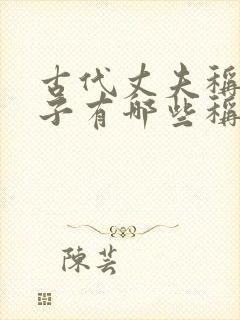 古代丈夫稱
子有哪些稱
陳芸